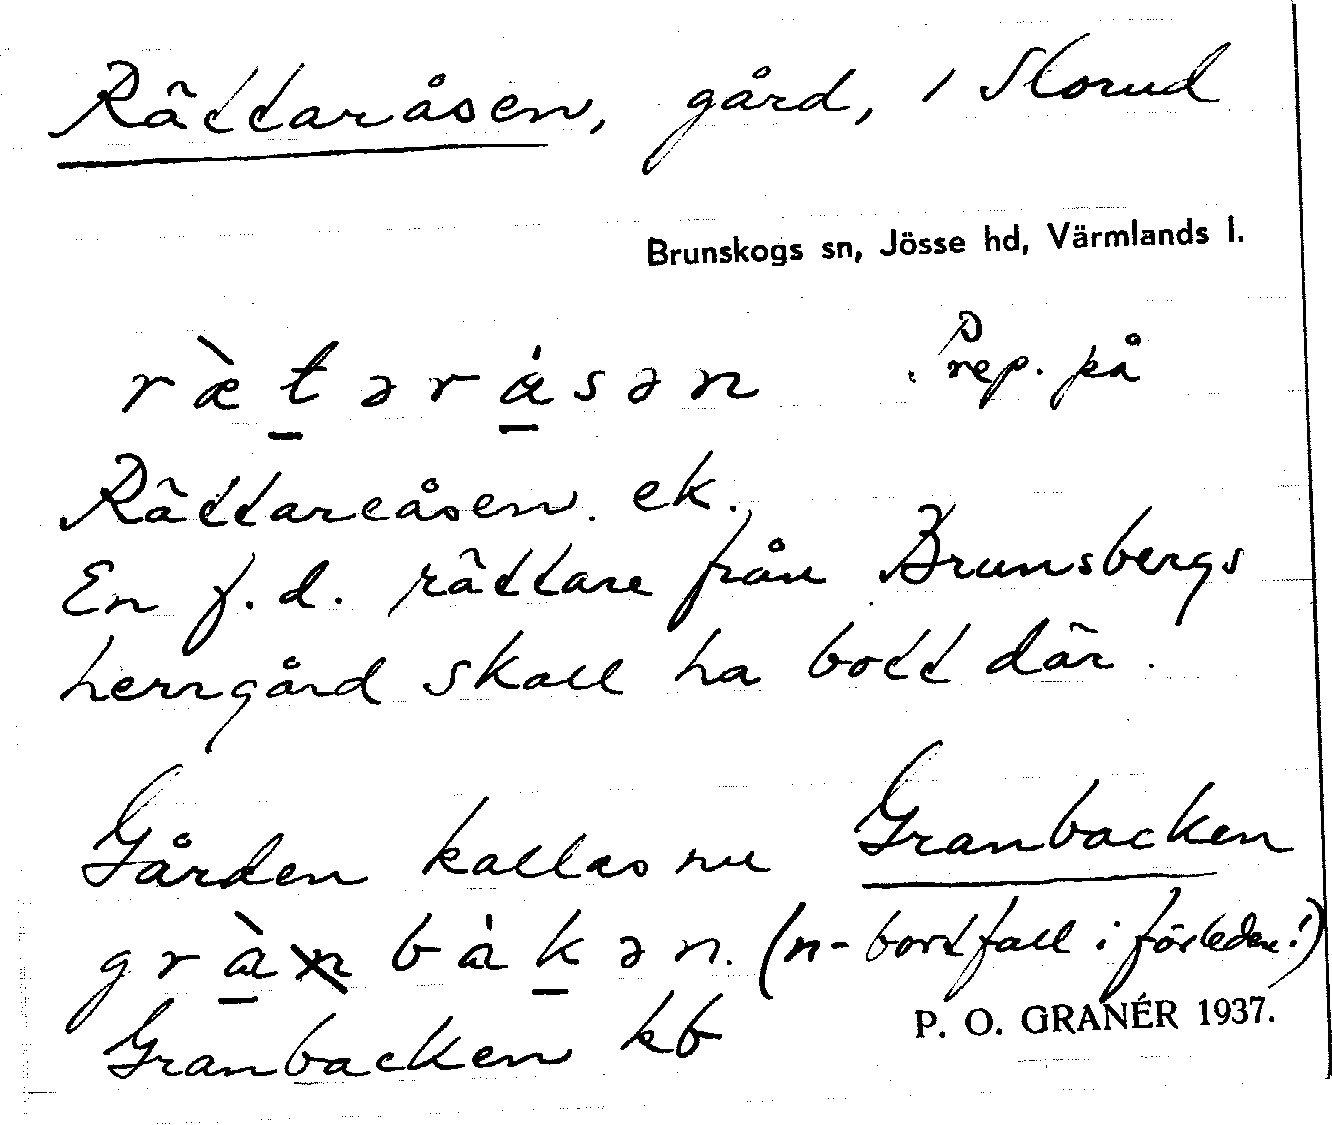 Rättaråsen, gård, i Storud
Brunskogs sn, Jösse hd, Värmlands l.
ræ̀t̠ərǻ̠sən. rep. på
Rättareåsen. ek.
En f.d. rättare från Brunsbergs
herrgård skall ha bott där.
Gården kallas nu Granbacken
grà̠n bák̠ən. (n-bortfall i förleden!)
Granbacken kb
P. O. GRANÉR 1937.